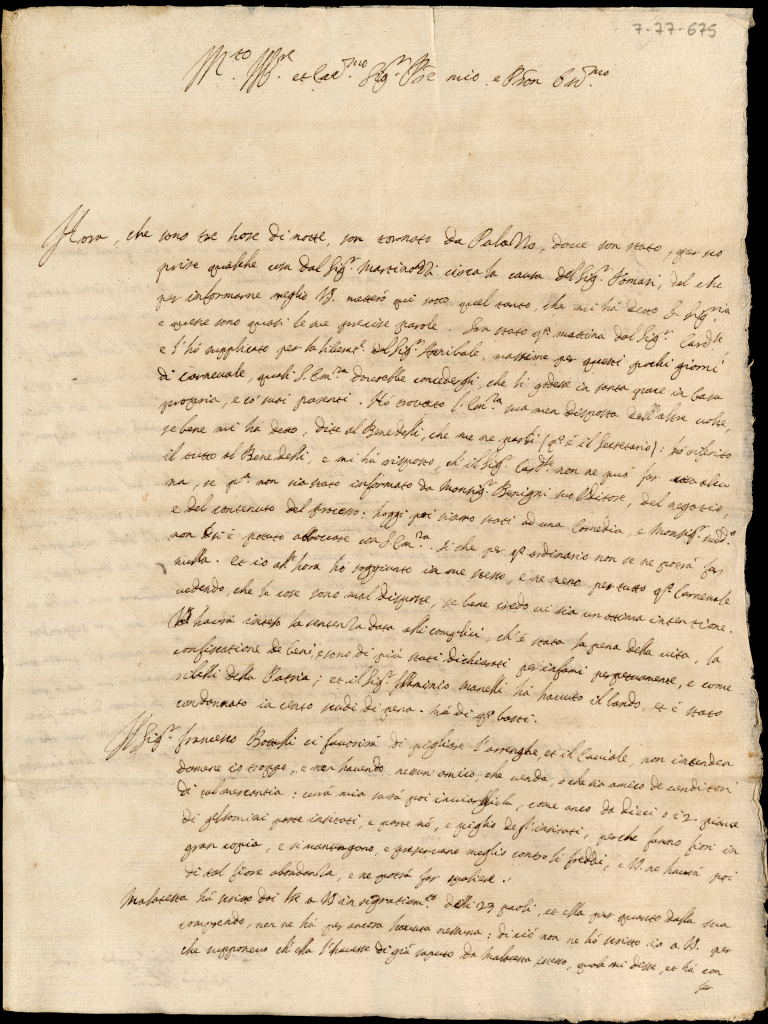 7-77-675
M.to Ill.re et Ecc.mo Sig.r P.re mio e P.ron Col.mo
Hora, che sono tre hore di notte, son tornato da Palazzo, dove son stato, per sa
prire qualche cosa dal Sig.r Martinozzi circa la causa del Sig.r Tomasi, del che
per informarne meglio VS. metterò qui sotto quel tanto, che mi hà detto S. Sig.ria
e queste sono quasi le sue precise parole. Son stato q.ta mattina dal Sig.r Card.le
e l'hò supplicato per la liberat.e del Sig.r Annibale, massime per questi pochi giorni
di carnevale, quali S. Em.za dovrebbe concederghi, che li godesse in santa pace in Casa
propria, e co' suoi parenti. Hò trovato S. Em.za sua men disposta dell'altre volte,
se bene mi hà detto, dite al Benedetti, che me ne parli (q.to è il Secretario): hò riferito
il tutto al Benedetti, e mi hà risposto, ch'il Sig.r Card.le non ne può far altro
se p.a non sia stato informato da Monsig.r Benigni suo Uditore, del negotio,
e del contenuto del processo. hoggi poi siamo stati ad una Comedia, e Monsig.r sud.o
non si è potuto abboccare con S. Em.za. Si che per q.to ordinario non se ne potrà far
nulla. et io all'hora hò soggiunto in me stesso, e ne meno per tutto q.to Carnevale
vedendo, che le cose sono mal disposte, se bene credo vi sia un ottima intentione.
VS haverà inteso la sentenza data alli complici, ch'è stata la pena della vita, la
confiscatione de beni, e sono di più stati dichiarati per infami perpetuamente, e come
ribelli della Patria; et il Sig.r Flaminio Manelli hà havuto il bando, et è stato
condannato in cento scudi di pena. Mà di q.to basti.
Il Sig.r Francesco Bocelli ci favorirà di pigliare l'arrenghe, et il Caviale, non intenden
domene io troppo, e non havendo nessun'amico che venda, ò che sia amico de venditori
di tal mercantia: cura mia sarà poi inviarglieli, come anco da dieci o 12 piante
di gelsomini parte insitati, e parte nò, e piglio de gl'insitati, perche fanno fiori in
gran copia, e si mantengono, e preservano meglio contro li freddi, e VS. ne haverà poi
di tal fiore abondanza, e ne potrà far
Malatesta hà scritto doi l're a VS in delli 23 paoli, et ella per quanto dalla sua
comprendo, non ne hà per ancora havuta nessuna: di ciò non ne hò scritto io a VS. per
che supponevo ch'ella l'havesse di già saputo da Malatesta istesso, quale mi disse, et hà con